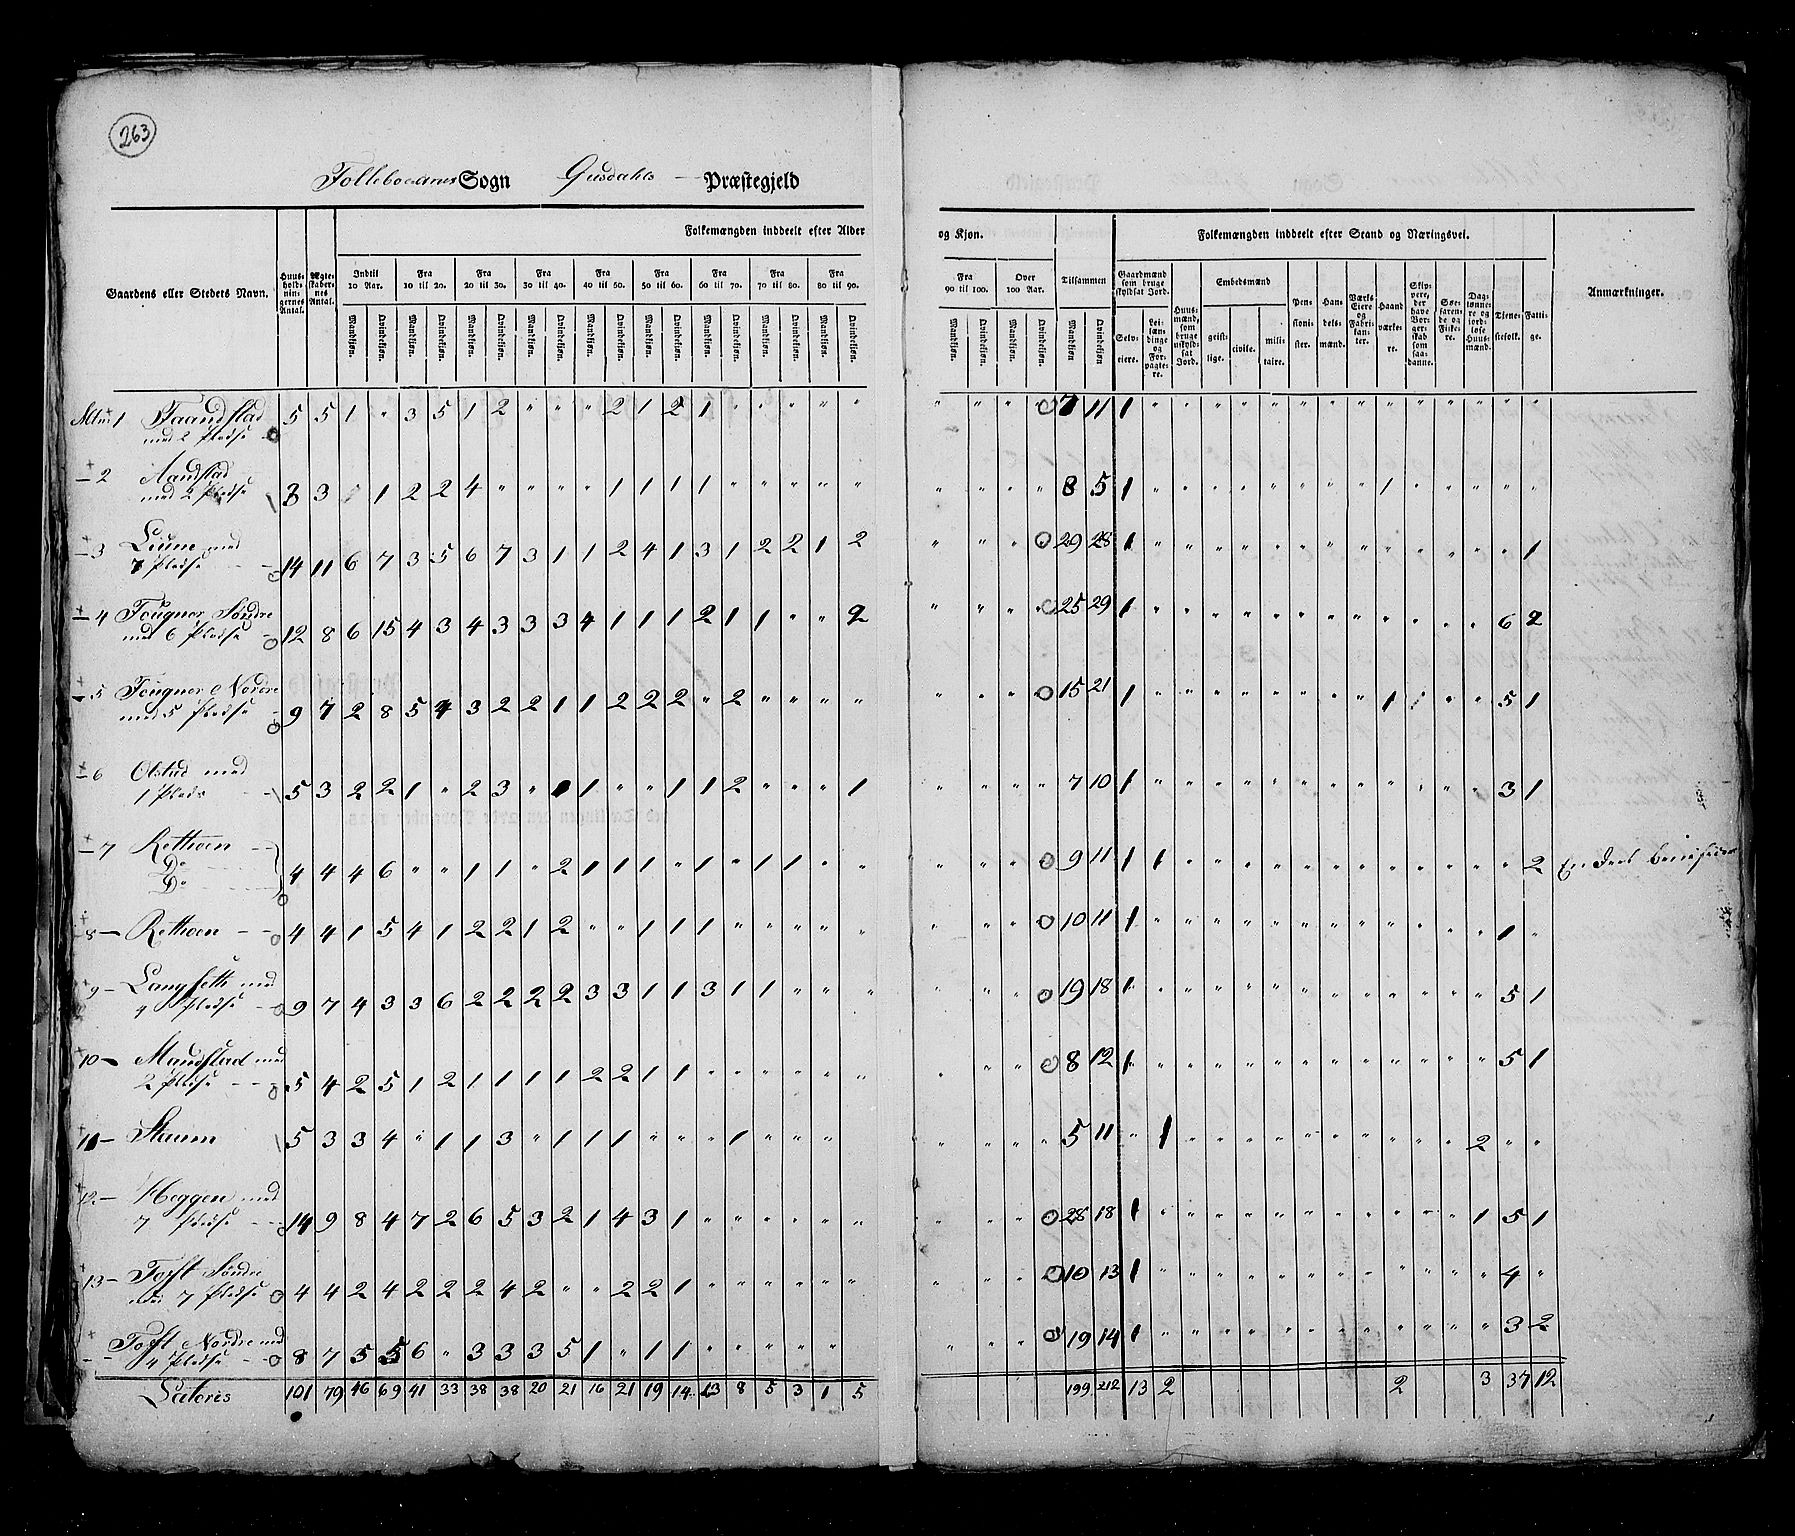 263
Folleboernes Sogn Gusdahls Præstegjeld
Folkemængden inddeelt efter Alder og Kjøn.
Folkemængden inddeelt efter Stand og Næringsvei.
Gaardens eller Stedets Navn.
Huusholdningernes Antal.
Ægteskabernes Antal.
Indtil 10 Aar.
Fra 10 til 20.
Fra 20 til 30.
Fra 30 til 40.
Fra 40 til 50.
Fra 50 til 60.
Fra 60 til 70.
Fra 70 til 80.
Fra 80 til 90.
Fra 90 til 100.
Over 100 Aar.
Tilsammen
Gaardmænd som bruge skyldsat Jord.
Huusmænd, som bruge uskyldsat Jord.
Embedsmænd
Pensionister.
Handelsmænd.
Værks Eiere og Fabrikanter.
Haandværkere.
Skippere, der have Borgerskab som saadanne.
Søefarende og Fiskere.
Daglønnere og jordløse Huusmænd.
Tjenestefolk.
Fattige.
Anmærkninger.
Mandkjøn. Qvindekjøn. Mandkjøn. Qvindekjøn. Mandkjøn. Qvindekjøn. Mandkjøn. Qvindekjøn. Mandkjøn. Qvindekjøn. Mandkjøn. Qvindekjøn. Mandkjøn. Qvindekjøn. Mandkjøn. Qvindekjøn. Mandkjøn. Qvindekjøn. Mandkjøn. Qvindekjøn. Mandkjøn. Qvindekjøn. Mandkjøn Qvindekjøn.
Selveiere. Leilændinge og Forpagtere. geistlige. civile. militaire.
1 Faandstad med 2 Pladse 5 5 1 " 3 5 1 2 " " " 2 1 2 1 " " " " " " " " 7 11 1
2 Aandstad med 2 Pladse 3 3 1 1 2 2 4 " " " " 1 1 1 1 " " " " " " " " 8 5 1 1
3 Liune med 7 Pladse 14 11 6 7 3 5 6 7 3 1 1 2 4 1 3 1 2 2 1 2 " " " 29 28 1 1
4 Fougner Søndre med 6 Pladse 12 8 6 15 4 3 4 3 3 3 4 1 1 1 2 1 1 " " 2 " " " 25 29 1 6 2
5 Fougner Nordre med 5 Pladse 9 7 2 8 5 4 3 2 2 1 1 2 2 2 " 2 " " " " " " " 15 21 1 1 5 1
6 Olstad med 1 Plads 5 3 2 2 1 " 2 3 " 1 1 " " 1 1 2 " " " 1 " " " " 7 10 1 3 1
7 Rethoen Do Do 4 4 4 6 " " 1 1 " 2 1 1 1 " 1 " 1 1 " " " " " 9 11 1 1 2 En Deel
8 Rethoen 4 4 1 5 4 1 2 2 1 2 " " 1 1 1 " " " " " " " " 10 11 1 1 "
9 Langseth med 4 Pladse 9 7 4 3 3 6 2 2 2 2 3 3 1 1 3 1 1 " " " " " " 19 18 1 5 1
10 Mandstad med 2 Pladse 5 4 2 5 1 2 1 1 1 1 2 2 1 1 " " " " " " " " " 8 12 1 5 1
11 Staum 5 3 3 4 " 1 1 3 " 1 1 1 " " " 1 " " " " " " " 5 11 " 1 2 " "
12 Heggen med 7 Pladse 14 9 8 4 7 2 6 5 3 2 1 4 3 1 " " " " " " " " " 28 18 1 1 5 1
13 Toft Søndre med 7 Pladse 4 4 2 4 2 2 2 4 2 " " 2 2 1 " " " " " " " " " 10 13 1 4 "
Toft Nordre med 4 Pladse 8 7 5 5 6 " 3 3 3 5 1 " 1 1 " " " " " " " " " 19 14 1 3 2
Lateris 101 79 46 69 41 33 38 38 20 21 16 21 19 14 13 8 5 3 1 5 199 212 13 2 2 3 37 12